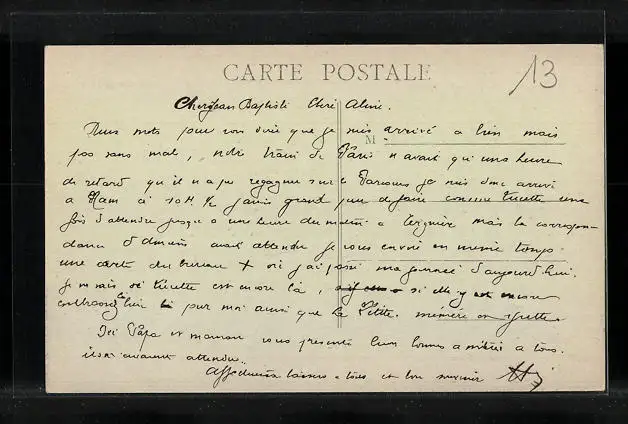 CARTE POSTALE
13
Cher Jean Baptisti Chère Aline.
Deux mots pour vous dire que je suis arrivé a bien mais
M
pas sans mal, notre train de Paris n avait qu une heure
de retard qu il n a pu regagner sur le Parcours je suis donc arrivé
a Ham à 10 H. grand peur de faire comme Lucette une
fois d'attendre jusqu a une heure du matin a Tergnier mais la correspon-
dance d avait attendu je vous envoi en meme temps
une carte du bureau où j ai passé ma journée d'aujourd hui.
Je ne sais si Lucette est encore là, si elle y est encore
embrassez la bien pour moi ainsi que La Petite. mémère
Ici Papa et maman vous présente leurs bonnes amitiés a tous.
attendu.
Affectueux baisers a tous et bon souvenir